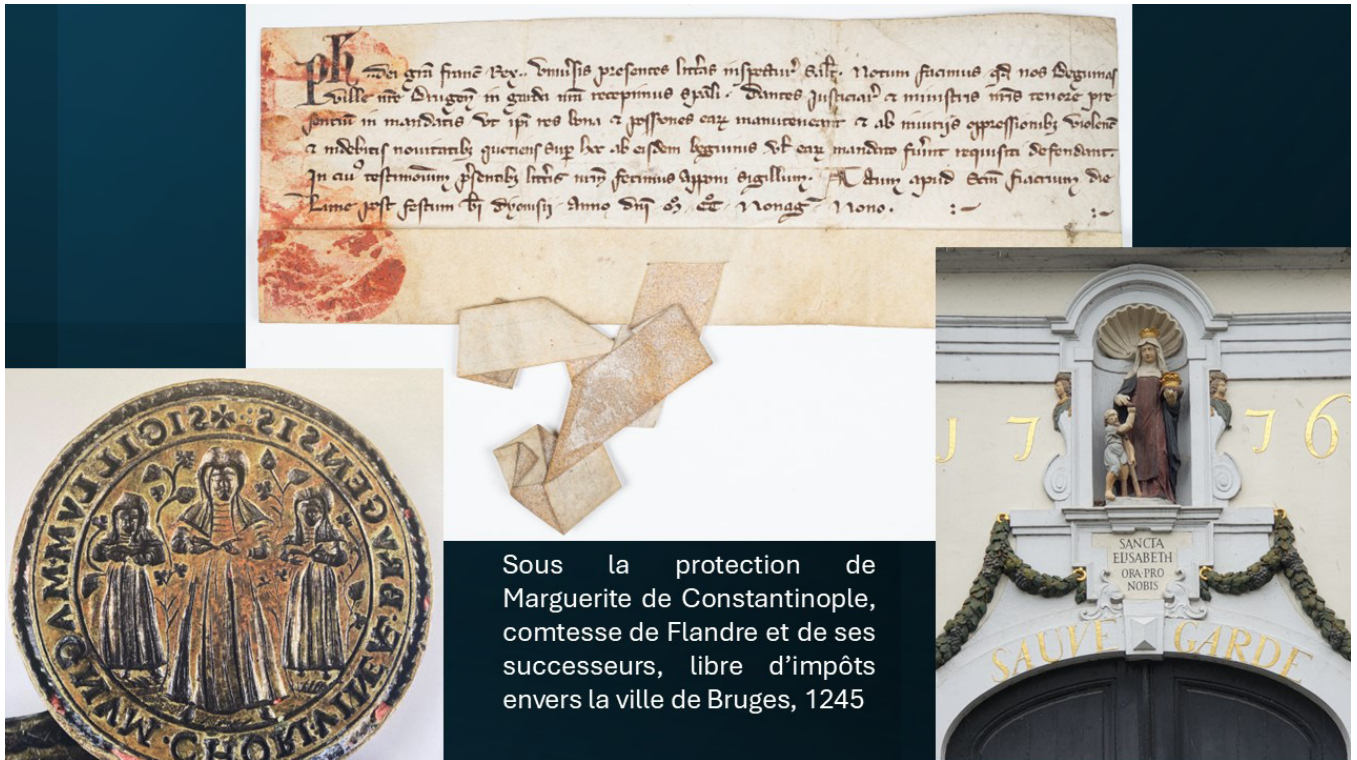 Ph dei grã franc̃ Rex. vniu̾sis presentes litt̃as inspectur̃ Salt̃. Notum facimus qd̃ nos Beguinas
ville nr̃e Brugeñ in garda nr̃a recepimus sp̃ali. Dantes Justiciar̃ & ministris nr̃is tenore pre
sentiũ in mandatis vt ip̃i res bona & possessiones eaꝝ manuteneant & ab iniurijs oppressionibꝫ violenc̃
& indebitis nouitatibꝫ quotiens sup̱ hoc ab eisdem beguinis vl̃ eaꝝ mandato fu̾int requisiti defendant.
In cuiꝰ testimonium p̃sentibꝫ litt̃is nr̃m fecimus apponi sigillum. Actum apud Sc̃m fiacrium die
Lune post festum bĩ dyonisij Anno dñi mº. ccº. Nonagº Nono.
SIGILLVM CHORI VINEÆ BRVGENSIS
17 76
SANCTA
ELISABETH
ORA·PRO
NOBIS
SAUVE GARDE
Sous la protection de
Marguerite de Constantinople,
comtesse de Flandre et de ses
successeurs, libre d'impôts
envers la ville de Bruges, 1245